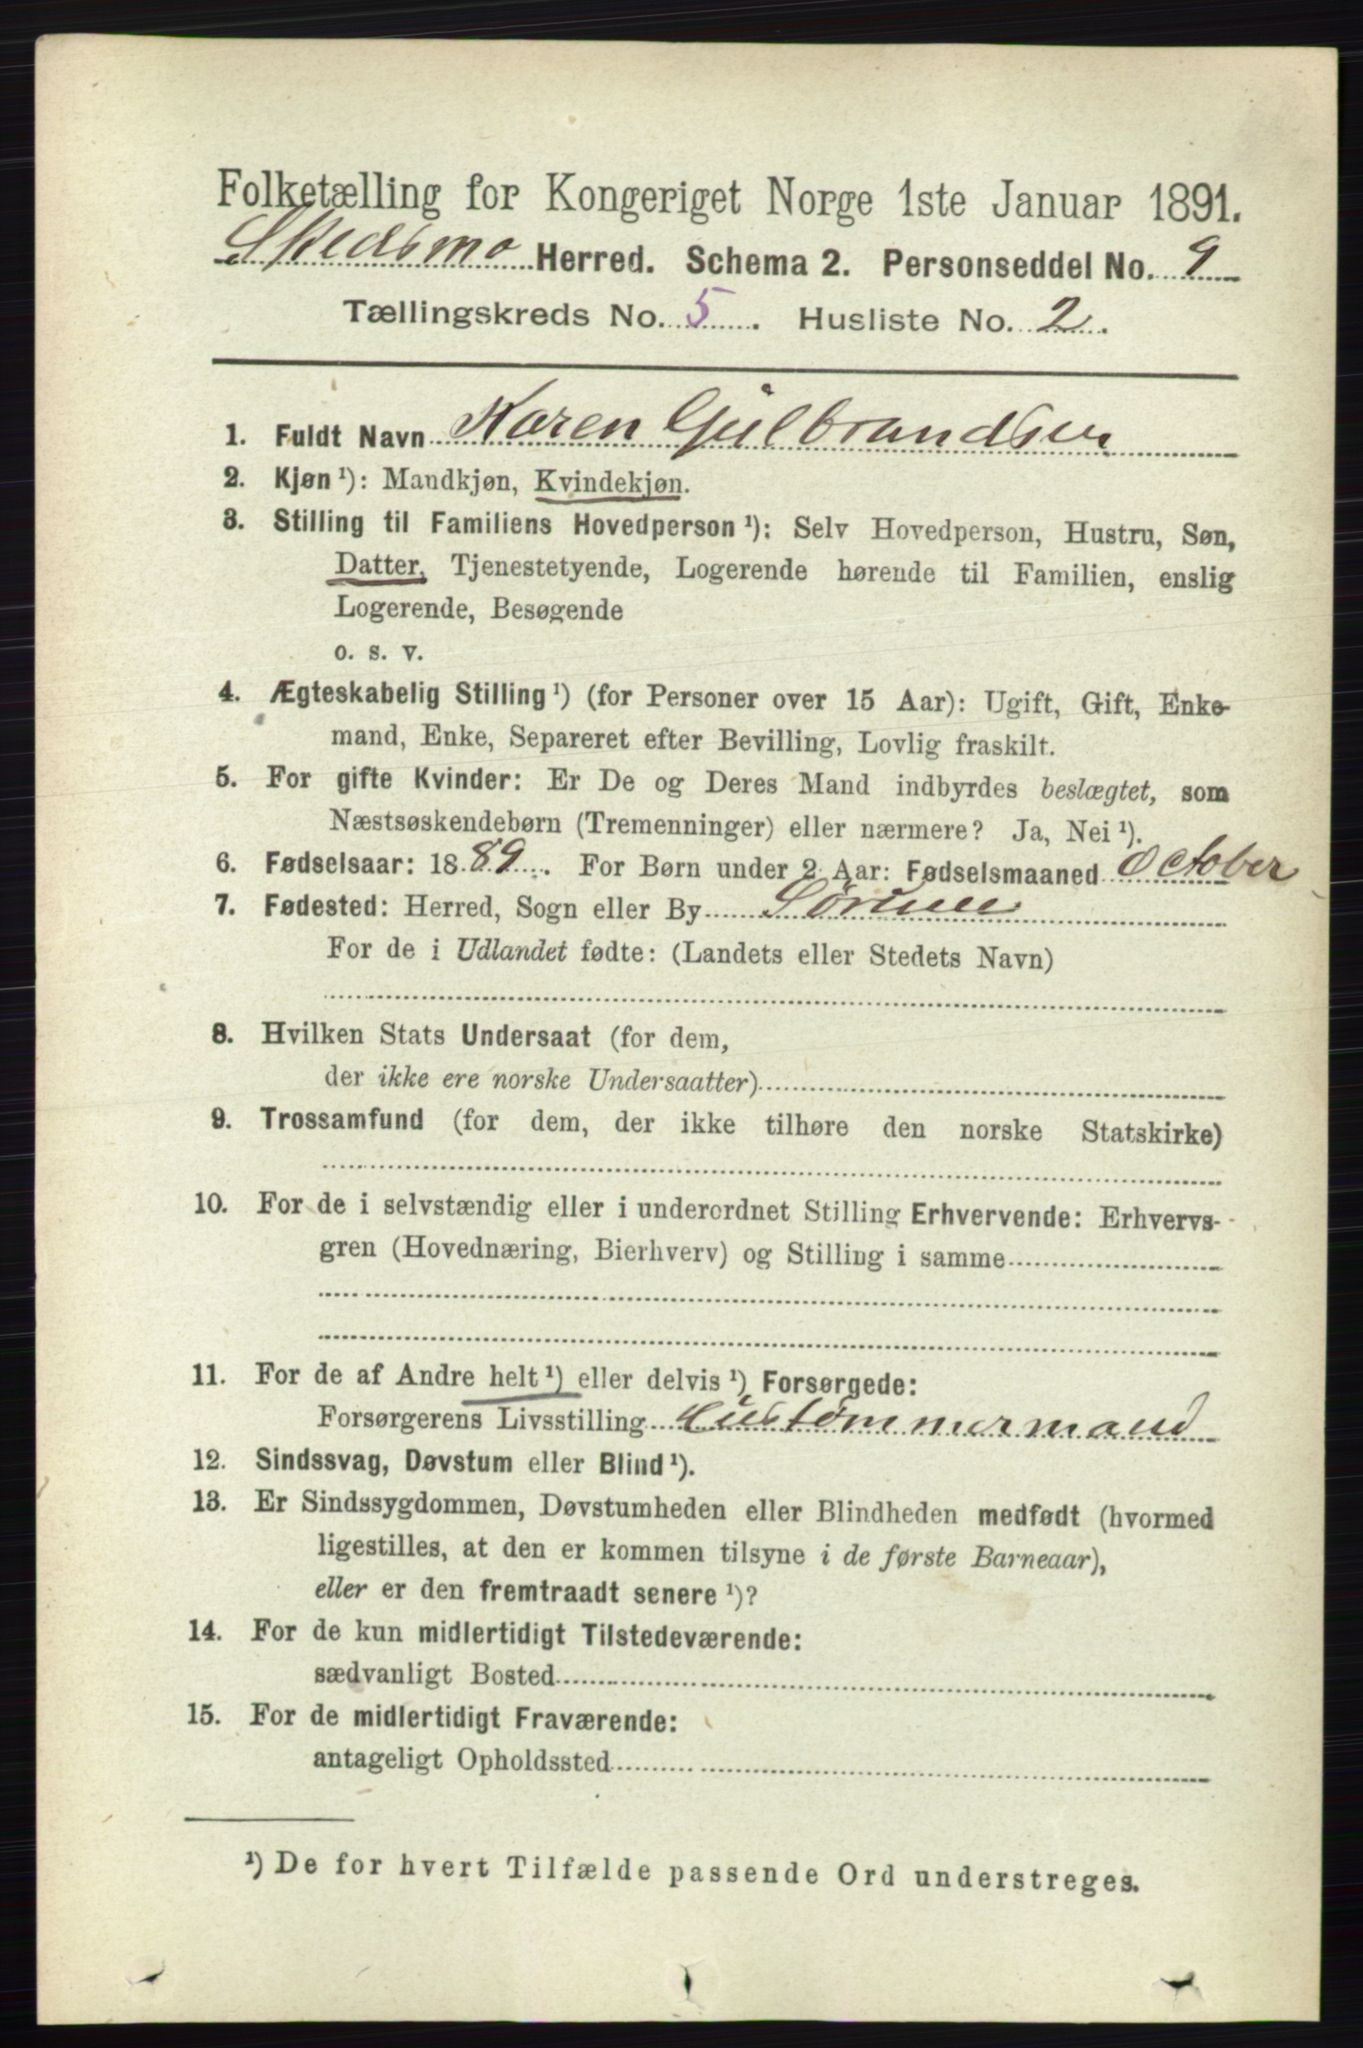 Folketælling for Kongeriget Norge 1ste Januar 1891.
Skedsmo Herred. Schema 2. Personseddel No. 9
Tællingskreds No. 5. Husliste No. 2.
1. Fuldt Navn Karen Gulbrandsen
2. Kjøn ¹): Mandkjøn, Kvindekjøn.
3. Stilling til Familiens Hovedperson ¹): Selv Hovedperson, Hustru, Søn,
Datter, Tjenestetyende, Logerende hørende til Familien, enslig
Logerende, Besøgende
o. s. v.
4. Ægteskabelig Stilling ¹) (for Personer over 15 Aar): Ugift, Gift, Enke-
mand, Enke, Separeret efter Bevilling, Lovlig fraskilt.
5. For gifte Kvinder: Er De og Deres Mand indbyrdes beslægtet, som
Næstsøskendebørn (Tremenninger) eller nærmere? Ja, Nei ¹).
6. Fødselsaar: 1889. For Børn under 2 Aar: Fødselsmaaned October
7. Fødested: Herred, Sogn eller By Sørum
For de i Udlandet fødte: (Landets eller Stedets Navn)
8. Hvilken Stats Undersaat (for dem,
der ikke ere norske Undersaatter)
9. Trossamfund (for dem, der ikke tilhøre den norske Statskirke)
10. For de i selvstændig eller i underordnet Stilling Erhvervende: Erhvervs-
gren (Hovednæring, Bierhverv) og Stilling i samme
11. For de af Andre helt ¹) eller delvis ¹) Forsørgede:
Forsørgerens Livsstilling Hustømmermand
12. Sindssvag, Døvstum eller Blind ¹).
13. Er Sindssygdommen, Døvstumheden eller Blindheden medfødt (hvormed
ligestilles, at den er kommen tilsyne i de første Barneaar),
eller er den fremtraadt senere ¹)?
14. For de kun midlertidigt Tilstedeværende:
sædvanligt Bosted
15. For de midlertidigt Fraværende:
antageligt Opholdssted
¹) De for hvert Tilfælde passende Ord understreges.